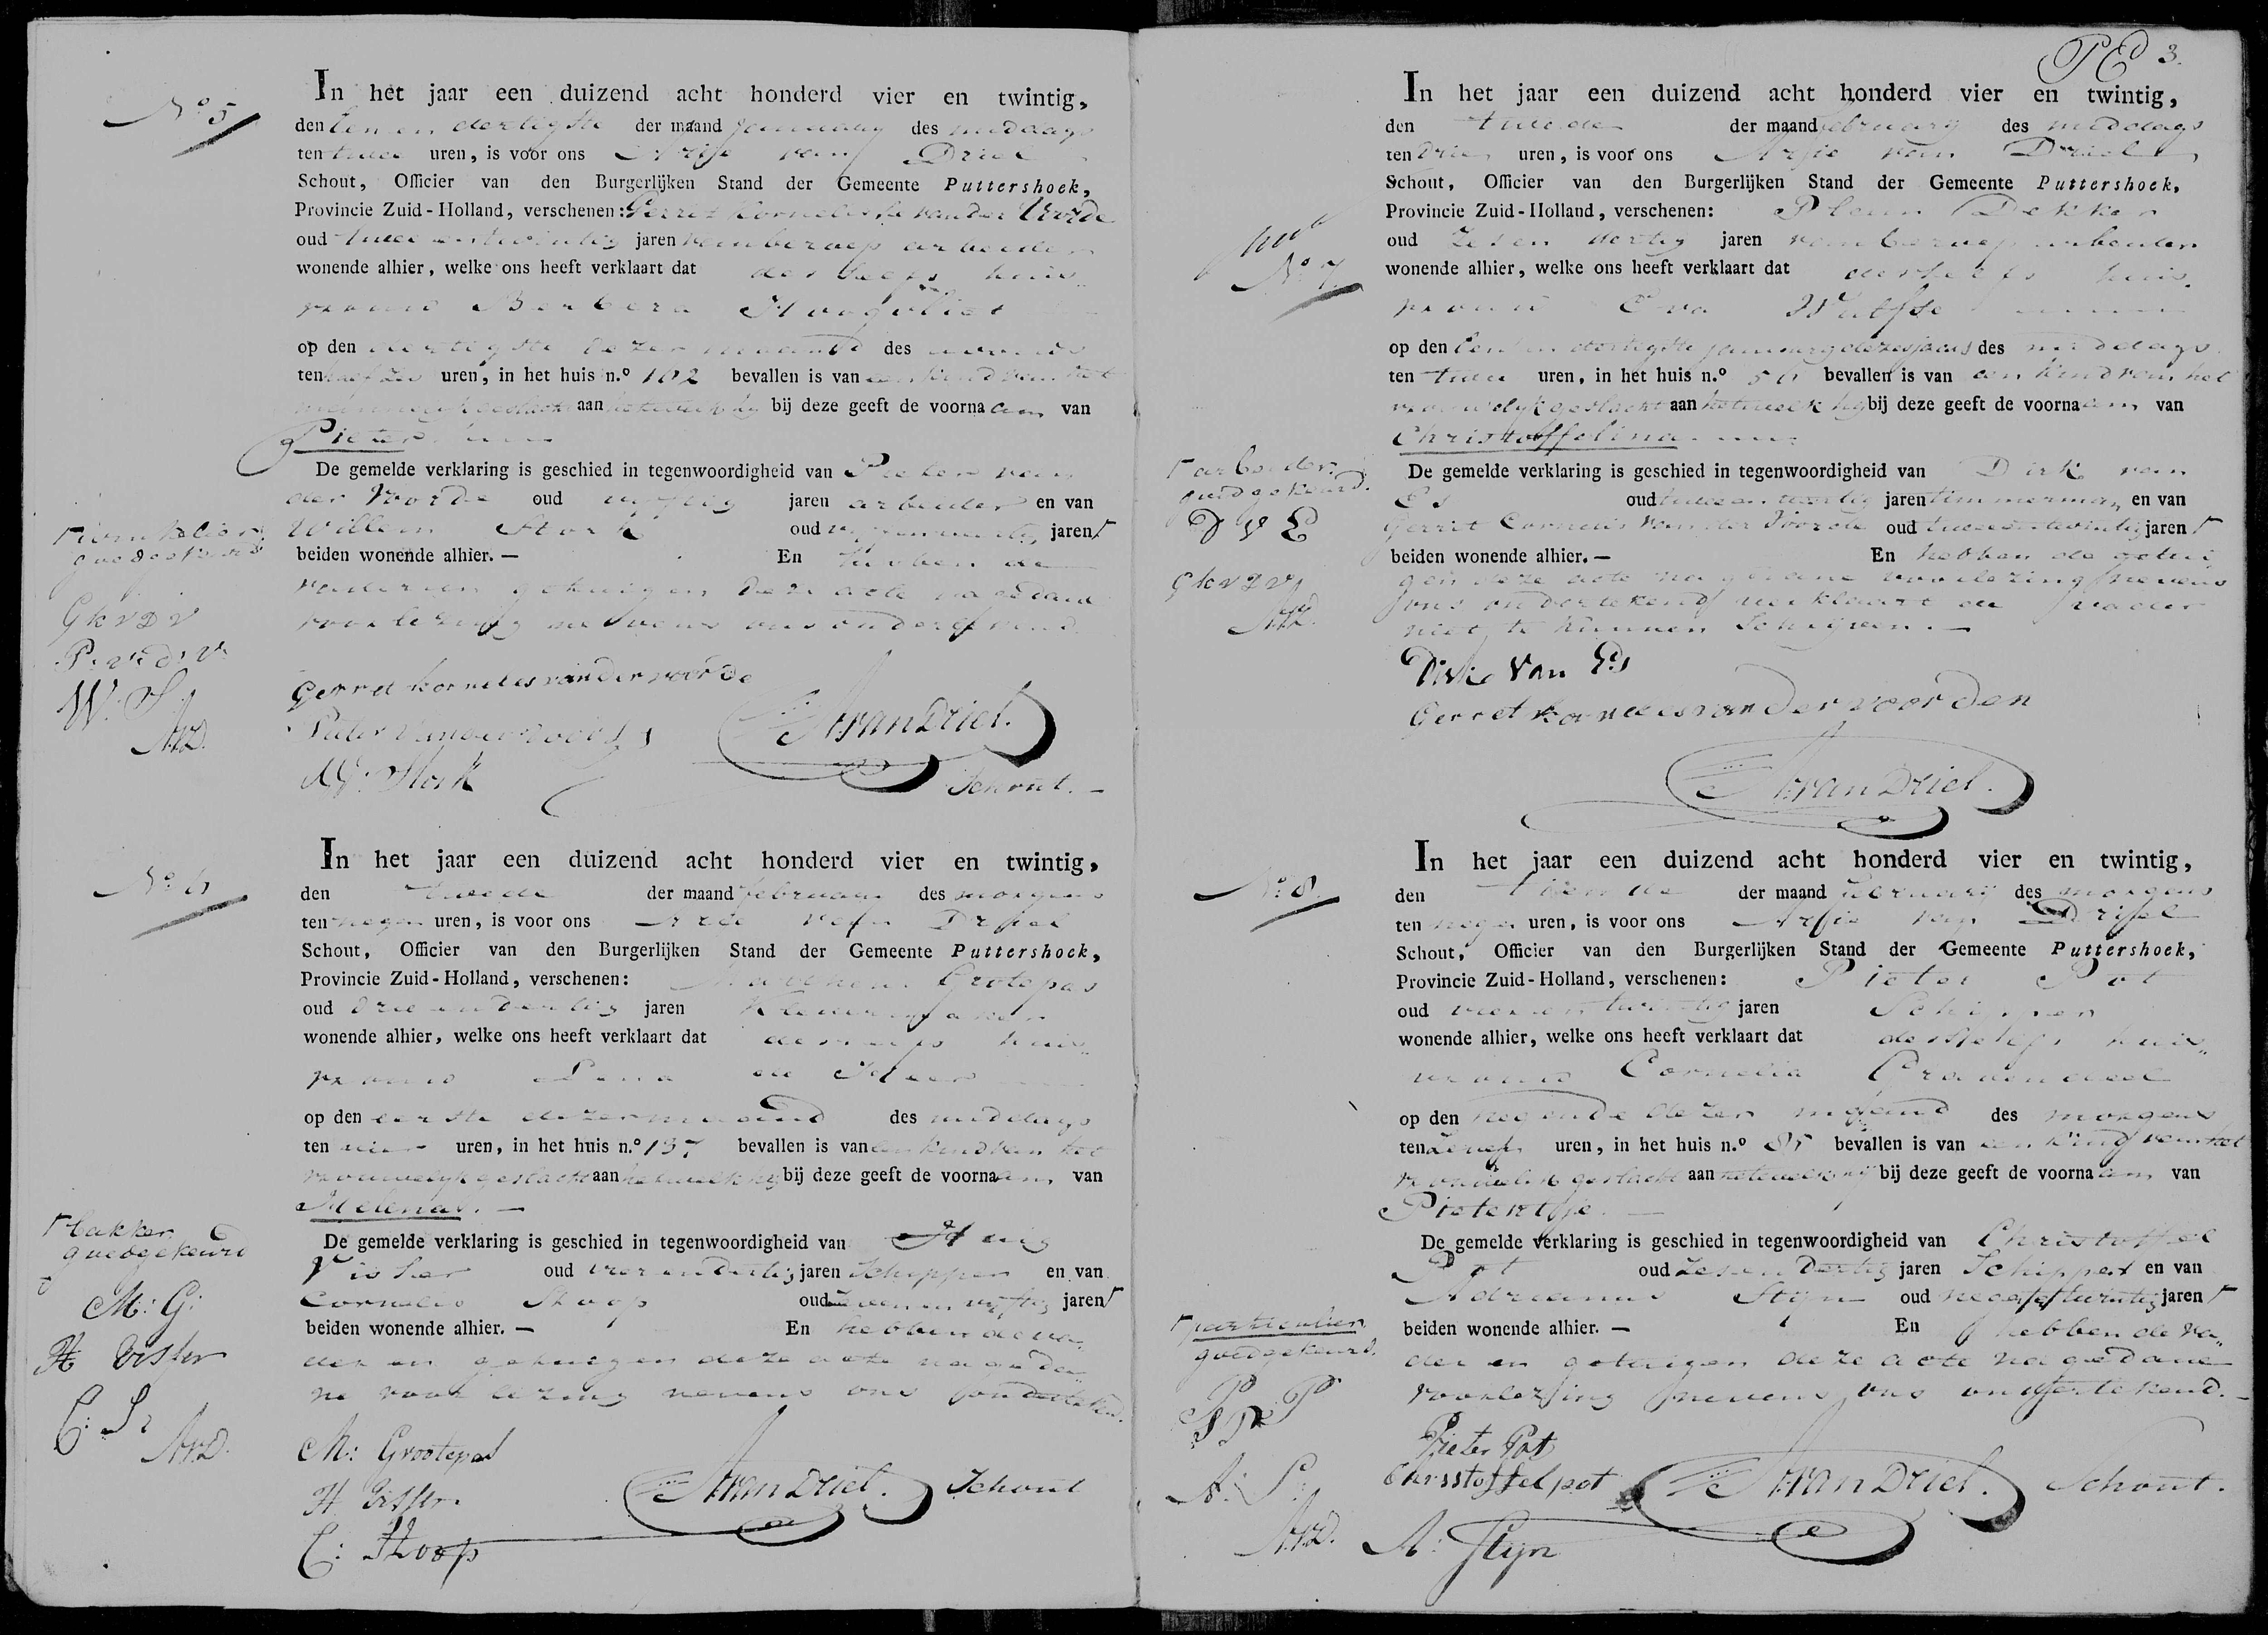 N.o 5
In het jaar een duizend acht honderd vier en twintig,
den een en dertigste der maand january des middags
ten twee uren, is voor ons Arije van Driel
Schout, Officier van den Burgerlijken Stand der Gemeente Puttershoek,
Provincie Zuid-Holland, verschenen: Gerret Kornelis van der Voorde
oud twee en twintig jaren van beroep arbeider
wonende alhier, welke ons heeft verklaart dat deszelfs huis
vrouw Barbera Hoogvliet
op den dertigste dezer maand des avonds
ten half zes uren, in het huis n.o 102 bevallen is van een kind van het
geslacht aan hetwelk hy bij deze geeft de voornaam van
Pieter
De gemelde verklaring is geschied in tegenwoordigheid van Pieter van
der Voorde oud vyftig jaren arbeider en van
Willem Stork oud jaren
beiden wonende alhier. — En hebben de
vader en getuigen deze acte na gedane
voorlezing nevens ons ondertekend
goedgekeurd
GKVDV
P. v. d. v.
W. S.
AvD.
Gerret kornelis van der voorde
Pieter van der voorde
W. Stork
A van Driel.
Schout. —
N.o 6
In het jaar een duizend acht honderd vier en twintig,
den tweede der maand february des morgens
ten negen uren, is voor ons Arie van Driel
Schout, Officier van den Burgerlijken Stand der Gemeente Puttershoek,
Provincie Zuid-Holland, verschenen: Mattheus Grotepas
oud drie en dertig jaren Kleermaker
wonende alhier, welke ons heeft verklaart dat deszelfs huis
vrouw Lena de
op den eerste dezer maand des middags
ten uren, in het huis n.o 137 bevallen is van een kind van het
vrouwelyk geslacht aan hetwelk hy bij deze geeft de voornaam van
Melena. —
De gemelde verklaring is geschied in tegenwoordigheid van Huig
Visser oud vier en dertig jaren Schipper en van
Cornelis Stoop oud zeven en vyftig jaren
beiden wonende alhier. — En hebben de va
der en getuigen deze acte na geda
ne voorlezing nevens ons ondertekend.
bakker
goedgekeurd
M: G:
H Visser
C: S:
AvD.
M: Grootepas
H. Visser.
C: Stoop
A van Driel. Schout
3.
N.o 7.
In het jaar een duizend acht honderd vier en twintig,
den tweede der maand february des middags
ten drie uren, is voor ons Arije van Driel
Schout, Officier van den Burgerlijken Stand der Gemeente Puttershoek,
Provincie Zuid-Holland, verschenen: Pleun Dekker
oud zes en dertig jaren van beroep arbeider
wonende alhier, welke ons heeft verklaart dat deszelfs huis
vrouw Eva Wulfse
op den een en dertigste january dezes jaars des middags
ten twee uren, in het huis n.o bevallen is van een kind van het
vrouwelyk geslacht aan hetwelk hy bij deze geeft de voornaam van
Christoffelina
De gemelde verklaring is geschied in tegenwoordigheid van Dirk van
Es oud jaren timmerman en van
Gerrit Cornelis van der Voorde oud twee en twintig jaren
beiden wonende alhier. — En hebben de getui
gen deze acte na gedane voorlezing nevens
ons ondertekend verklaart de vader
niet te kunnen Schryven. —
arbeider
goedgekeurd.
D V E
GKVDV
AvD.
Dirk van Es
Gerret kornelis van der voorden
A van Driel.
N.o 8.
In het jaar een duizend acht honderd vier en twintig,
den tiende der maand february des morgens
ten negen uren, is voor ons Arije van Driel
Schout, Officier van den Burgerlijken Stand der Gemeente Puttershoek,
Provincie Zuid-Holland, verschenen: Pieter Pot
oud vier en twintig jaren Schipper
wonende alhier, welke ons heeft verklaart dat deszelfs huis
vrouw Cornelia
op den negende dezer maand des morgens
ten zeven uren, in het huis n.o 85 bevallen is van een kind van het
vrouwelyk geslacht aan hetwelk hy bij deze geeft de voornaam van
Pietertje. —
De gemelde verklaring is geschied in tegenwoordigheid van Christoffel
Pot oud zes en dertig jaren Schipper en van
Adrianus Styn oud negen en twintig jaren
beiden wonende alhier. — En hebben de va
der en getuigen deze acte na gedane
voorlezing nevens ons ondertekend. —
particulier
goedgekeurd.
P. P
A: S:
AvD.
Pieter Pot
Chrisstoffel pot
A: Styn
A van Driel. Schout.